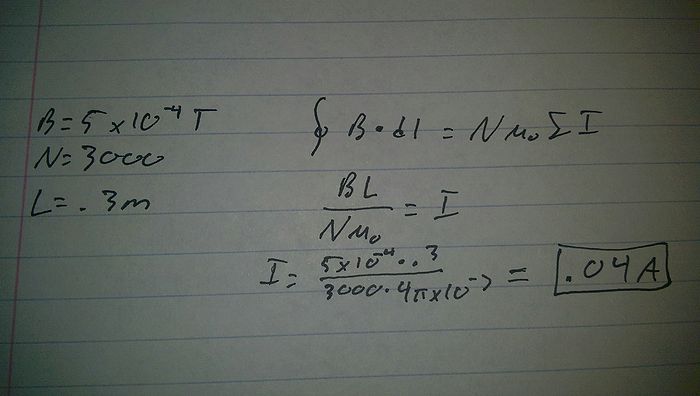 B = 5 x 10^-4 T
N = 3000
L = .3m
∮ B • dl = N μ₀ Σ I
BL / Nμ₀ = I
I = 5x10^-4 · .3 / 3000 · 4π x 10^-7 = .04A